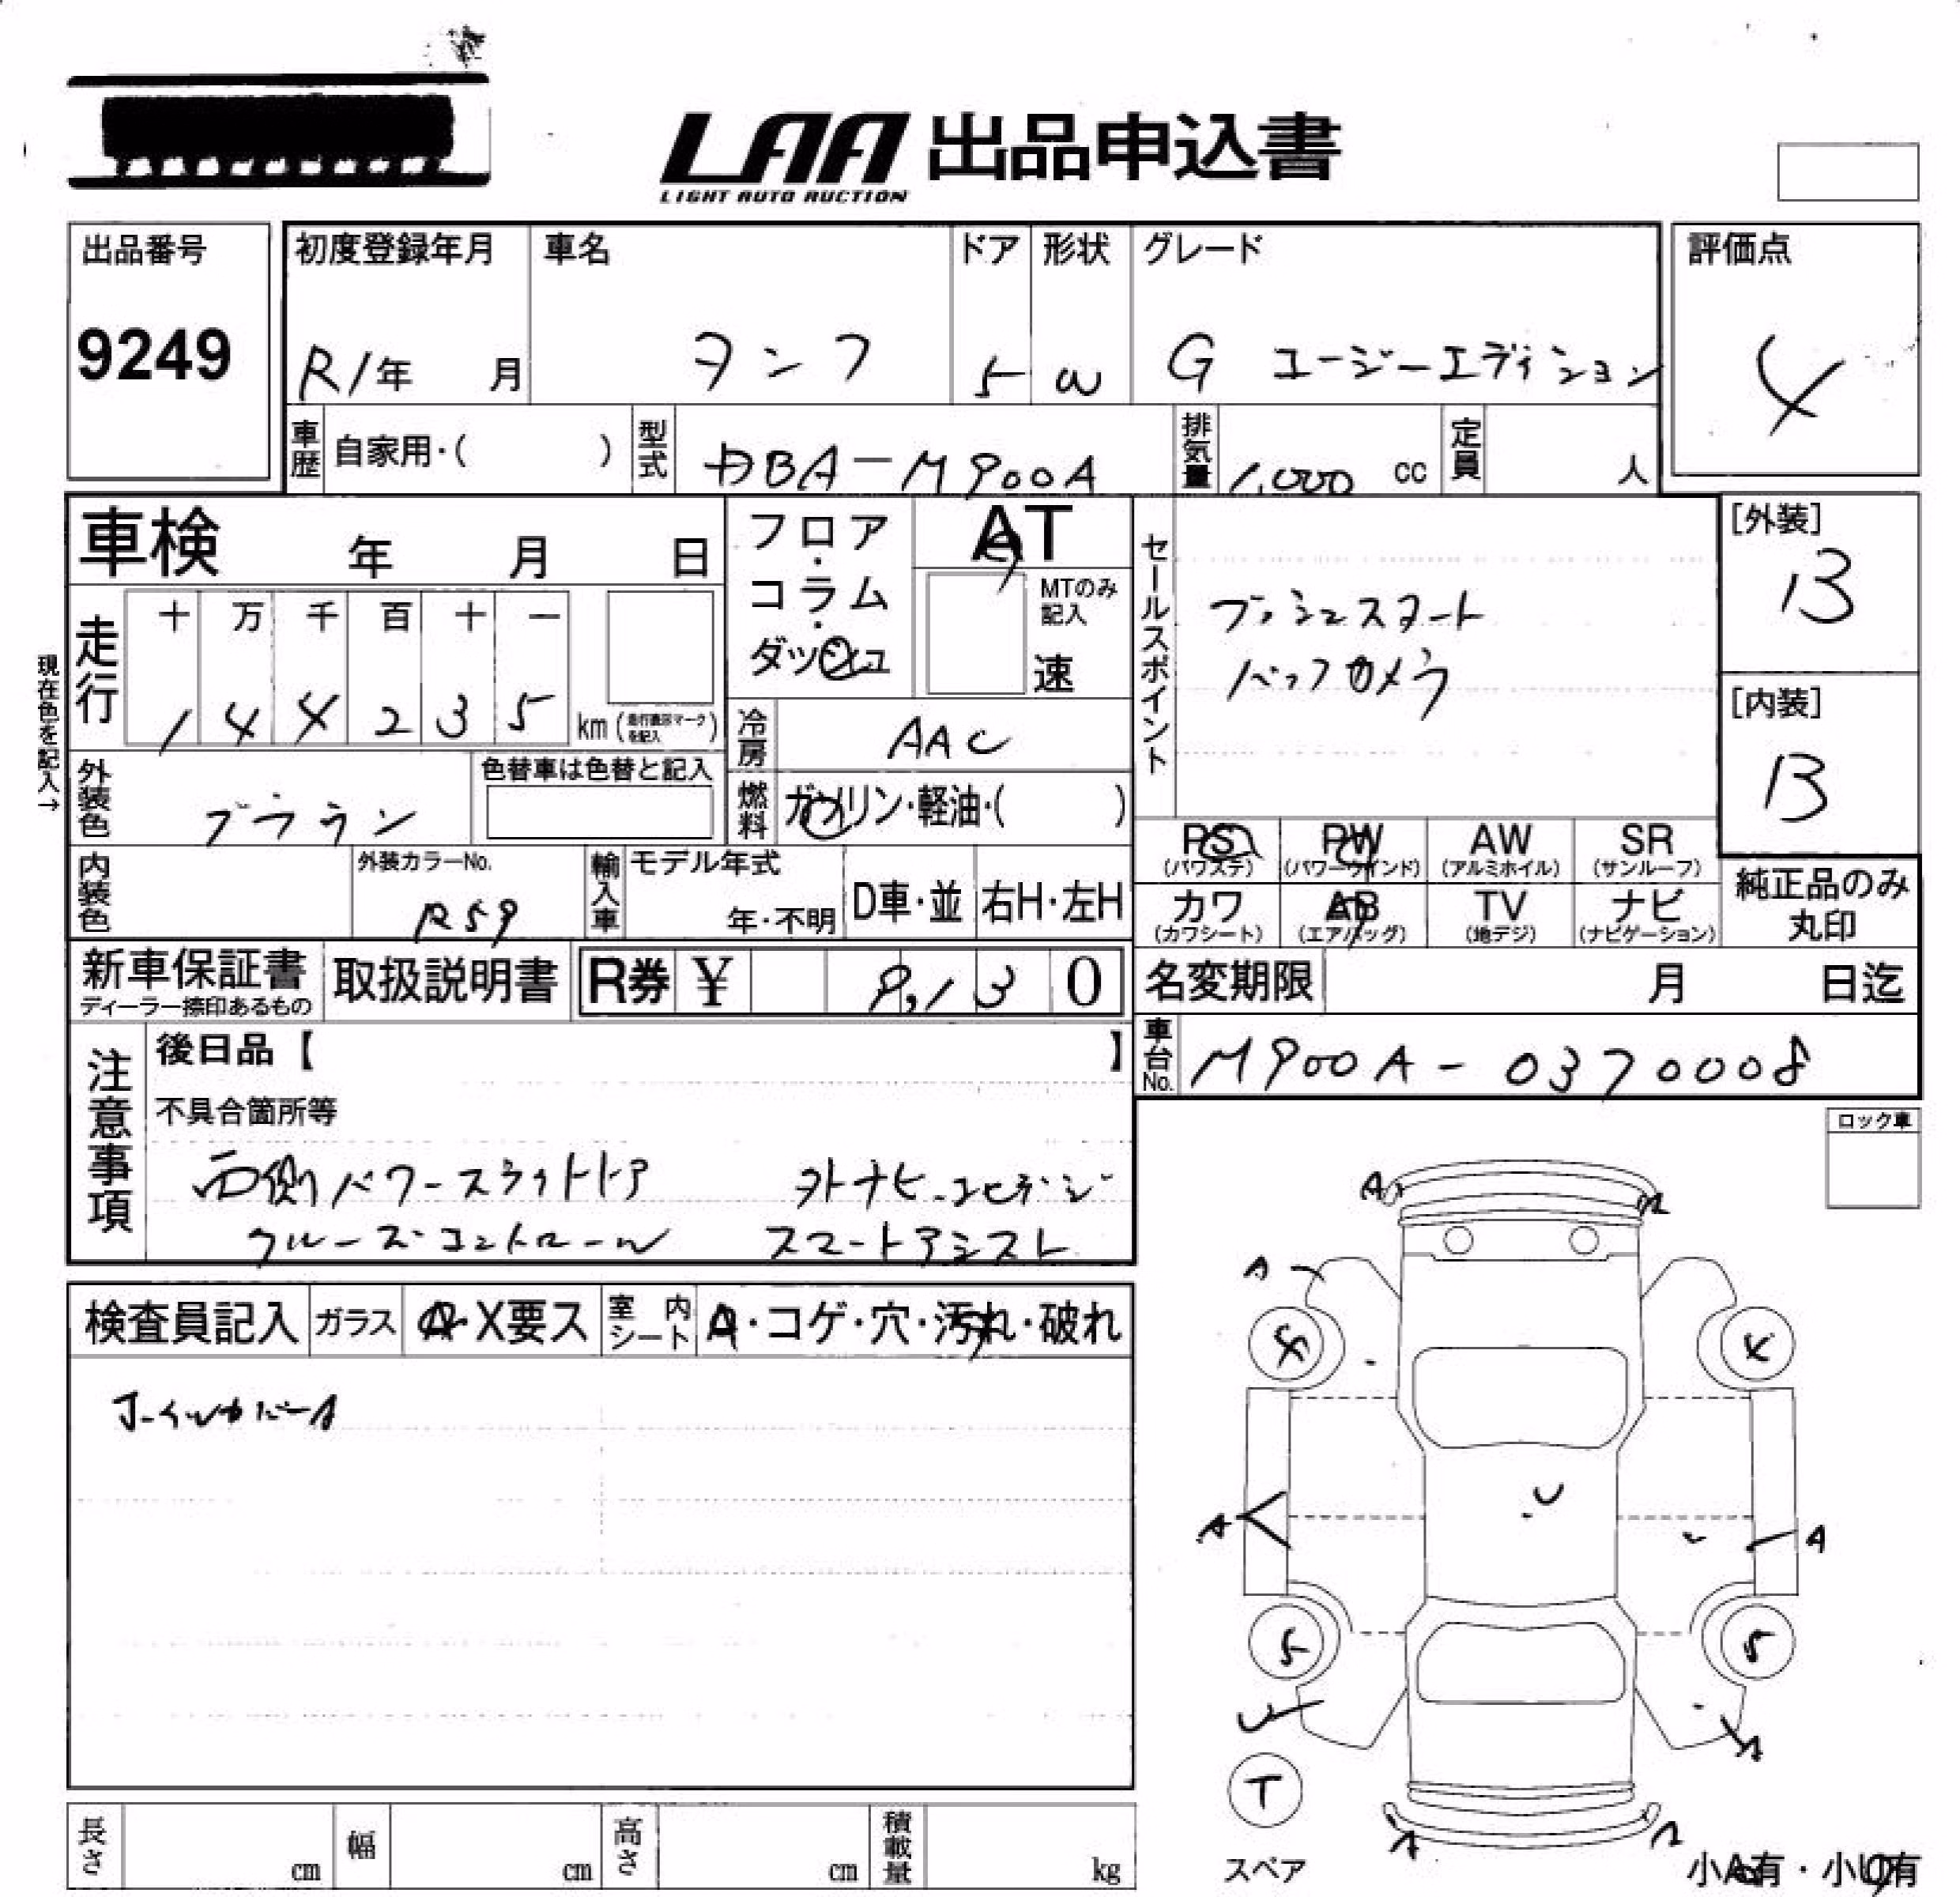 LAA 出品申込書
LIGHT AUTO AUCTION
出品番号
9249
初度登録年月
R1年 月
車名
タンク
ドア
5
形状
W
グレード
G コージーエディション
評価点
4
車歴 自家用・( )
型式 DBA-M900A
排気量 1,000 cc
定員 人
車検 年 月 日
フロア・コラム・ダッシュ
AT
MTのみ記入
速
セールスポイント
プッシュスタート
バックカメラ
[外装]
B
[内装]
B
現在色を記入→
走行
十 万 千 百 十 一
1 4 4 2 3 5 km (走行表示マークを記入)
冷房 AAC
外装色 ブラウン
色替車は色替と記入
燃料 ガソリン・軽油・( )
PS (パワステ)
PW (パワーウインド)
AW (アルミホイル)
SR (サンルーフ)
カワ (カワシート)
AB (エアバッグ)
TV (地デジ)
ナビ (ナビゲーション)
純正品のみ丸印
内装色
外装カラーNo.
R59
輸入車
モデル年式
年・不明
D車・並
右H・左H
新車保証書
ディーラー捺印あるもの
取扱説明書
R券 ¥ 9,130
名変期限 月 日迄
車台No. M900A-0370008
注意事項
後日品【 】
不具合箇所等
両側パワースライドドア 外ナビ・コセデジ
クルーズコントロール スマートアシスト
ロック車
検査員記入
ガラス A・X要ス
室内シート A・コゲ・穴・汚れ・破れ
ホイルカバーA
A
A
A
4
4
A
U
A
5
5
U
A
T
スペア
A
A
小A有・小U有
長さ cm
幅 cm
高さ cm
積載量 kg